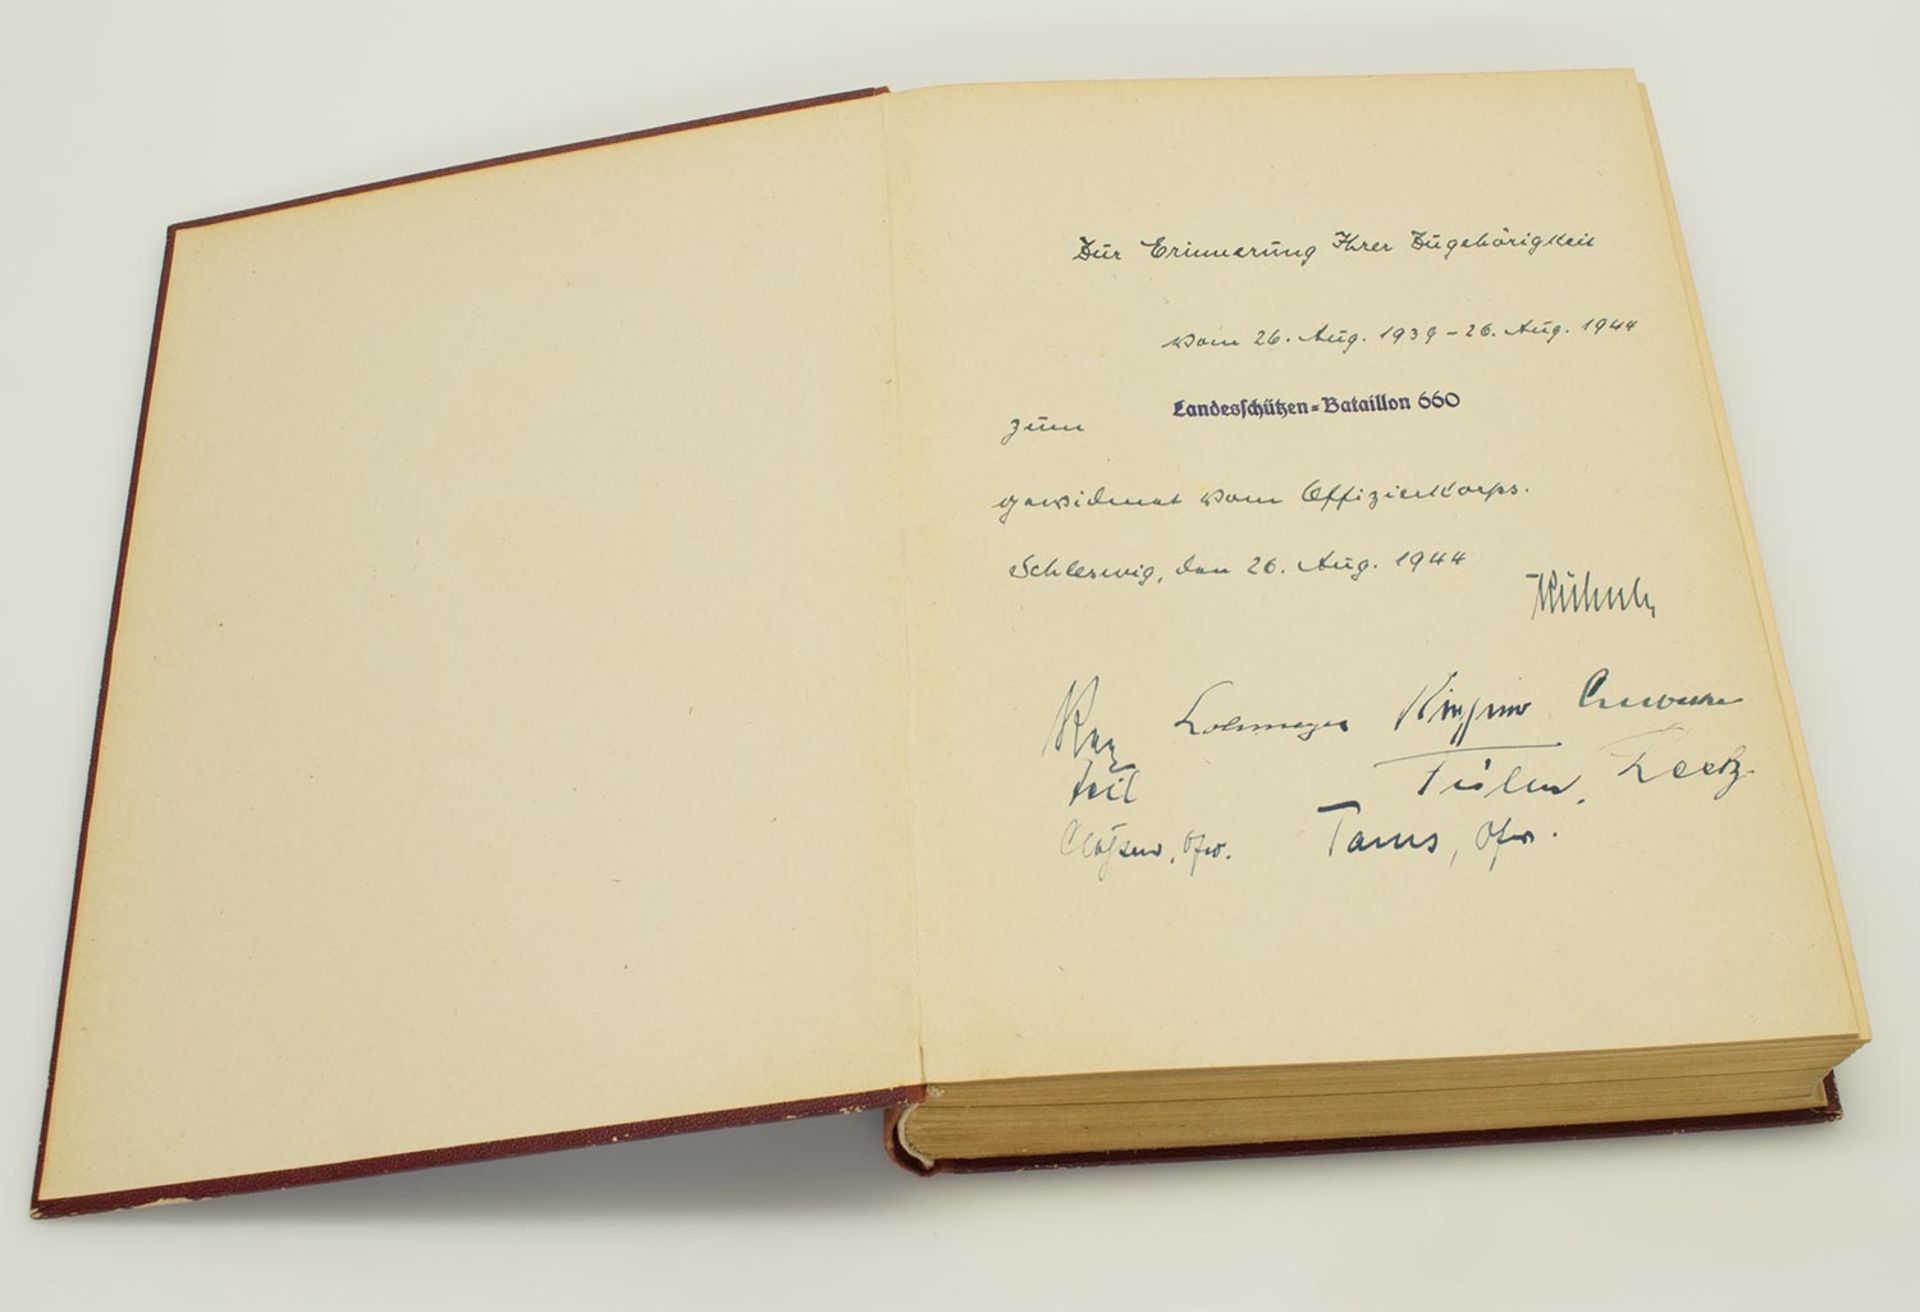 Zur Erinnerung Ihrer Zugehörigkeit
vom 26. Aug. 1939 - 26. Aug. 1944
zum Landesschützen-Bataillon 660
gewidmet vom Offizierkorps.
Schleswig, den 26. Aug. 1944
Lohmeyer
Tams, Ofw.